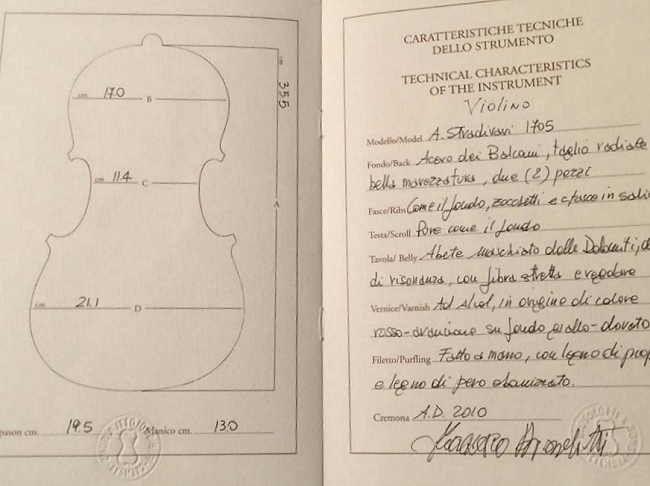 cm 17.0 B
cm 35.5
cm 11.4 C
A
cm 21.1 D
cm. 19.5 Manico cm. 13.0
CARATTERISTICHE TECNICHE
DELLO STRUMENTO
TECHNICAL CHARACTERISTICS
OF THE INSTRUMENT
Violino
Modello/Model A. Stradivari 1705
Fondo/Back Acero dei Balcani, taglio radiale
bella marezzatura, due (2) pezzi
Fasce/Ribs Come il fondo, zocchetti e in
Testa/Scroll Pure come il fondo
Tavola/ Belly Abete maschiato delle Dolomiti,
di risonanza, con fibra stretta e regolare
Vernice/Varnish Ad alcol, in origine di colore
rosso-arancione su fondo giallo-dorato
Filetto/Purfling Fatto a mano, con legno di
e legno di pero ebanizzato.
Cremona A.D. 2010